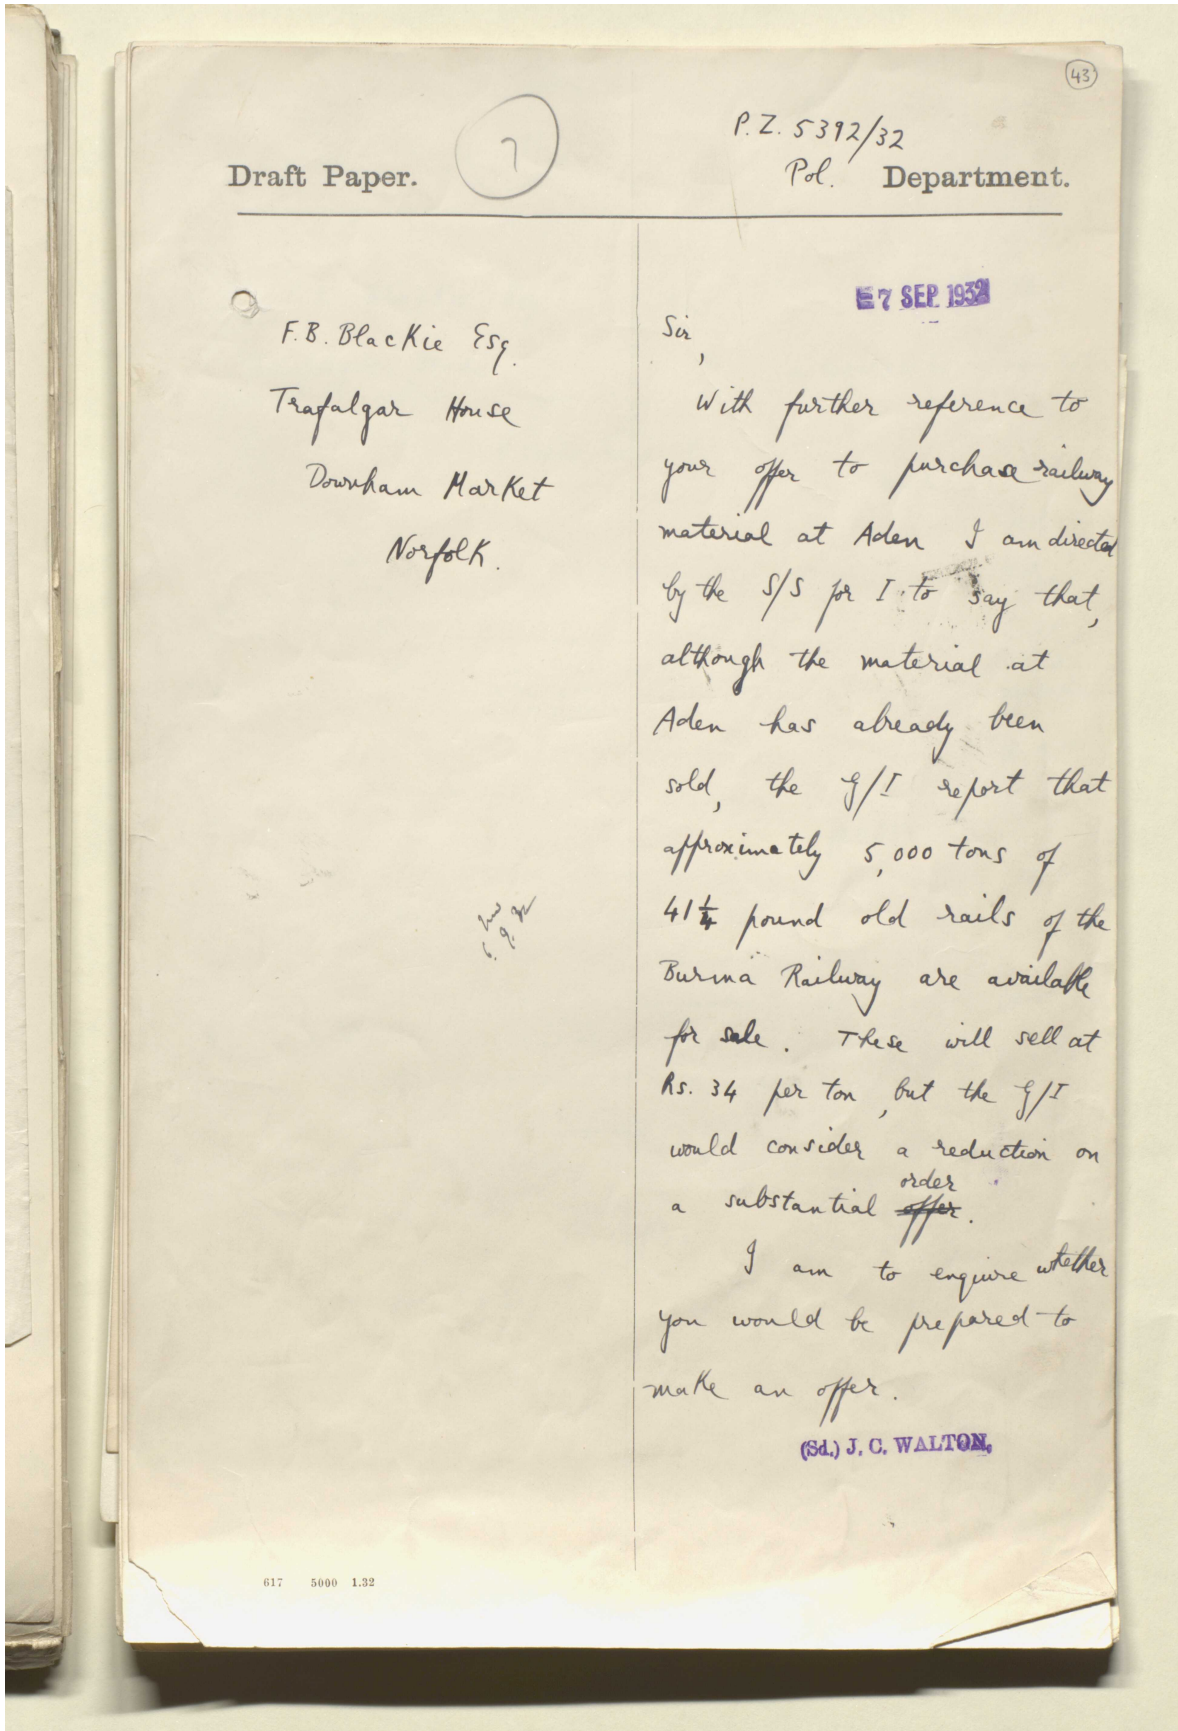 43
P.Z. 5392/32
7
Draft Paper.
Pol. Department.
7 SEP 1932
F.B. Blackie Esq.
Trafalgar House
Downham Market
Norfolk.
Sir,
With further reference to
your offer to purchase railway
material at Aden I am directed
by the S/S for I. to say that,
although the material at
Aden has already been
sold, the G/I report that
approximately 5,000 tons of
41 1/4 pound old rails of the
Burma Railway are available
for sale. These will sell at
Rs. 34 per ton, but the G/I
would consider a reduction on
order
a substantial offer.
I am to enquire whether
you would be prepared to
make an offer.
(Sd.) J. C. WALTON.
6.9.32
617 5000 1.32